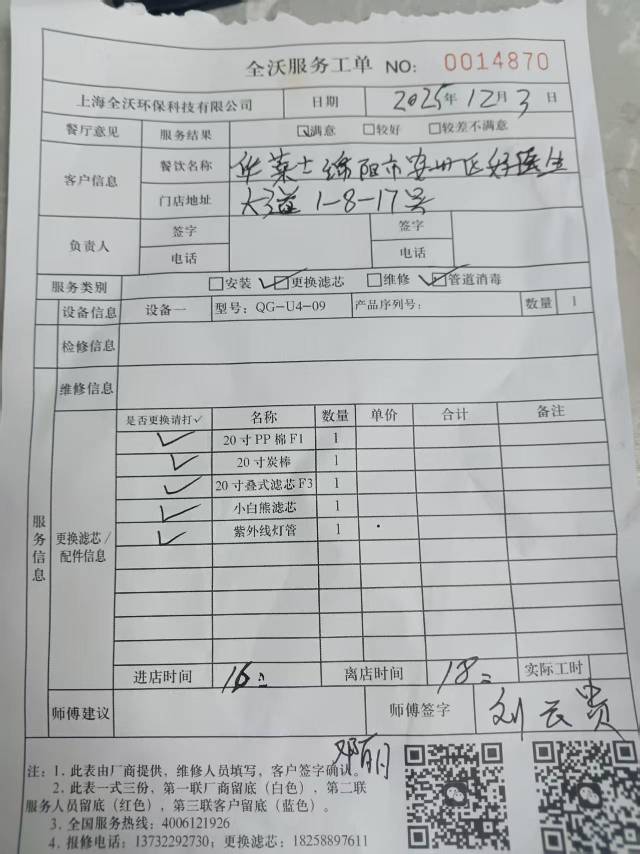 全沃服务工单 NO: 0014870
上海全沃环保科技有限公司 日期 2025年12月3日
餐厅意见 服务结果 ☑满意 □较好 □较差不满意
客户信息 餐饮名称 华莱士绵阳市安州区好医生
门店地址 大道1-8-17号
负责人 签字 签字
电话 电话
服务类别 □安装 ☑更换滤芯 □维修 ☑管道消毒
设备信息 设备一 型号: QG-U4-09 产品序列号: 数量 1
检修信息
维修信息
服务信息
更换滤芯/配件信息
是否更换请打√ 名称 数量 单价 合计 备注
✓ 20寸PP棉F1 1
✓ 20寸炭棒 1
✓ 20寸叠式滤芯F3 1
✓ 小白熊滤芯 1
✓ 紫外线灯管 1
进店时间 16: 离店时间 18: 实际工时
师傅建议 师傅签字 刘云贵
邓丽月
注: 1. 此表由厂商提供,维修人员填写,客户签字确认。
2. 此表一式三份,第一联厂商留底(白色),第二联
服务人员留底(红色),第三联客户留底(蓝色)。
3. 全国服务热线: 4006121926
4. 报修电话: 13732292730; 更换滤芯: 18258897611